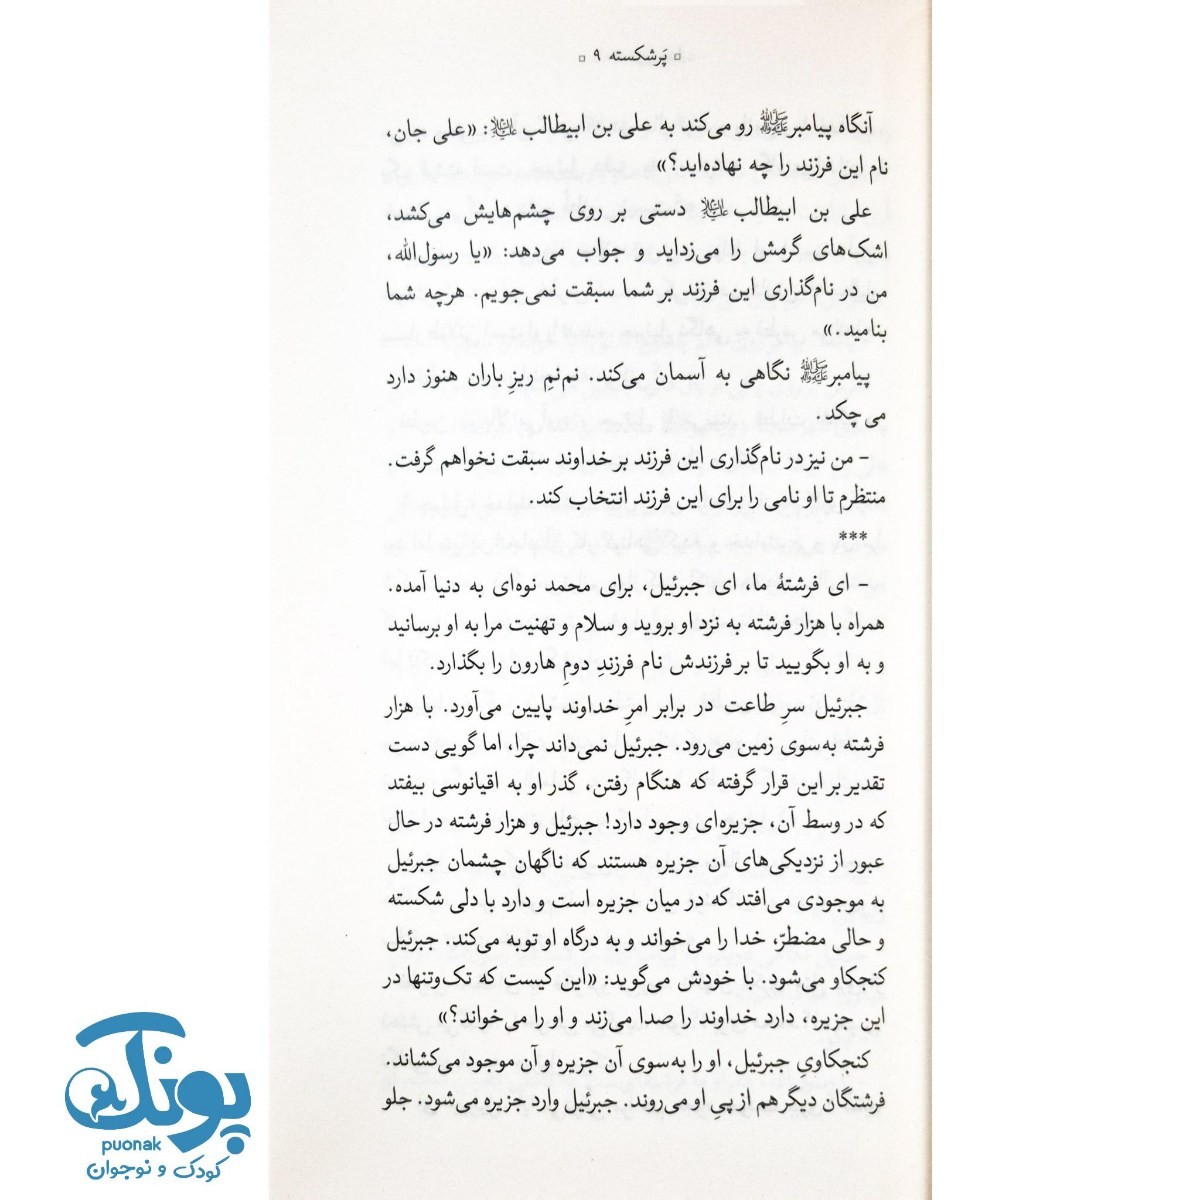 ▫ پَرشکسته ۹ ▫
آنگاه پیامبرﷺ رو می‌کند به علی بن ابیطالب: «علی جان،
نام این فرزند را چه نهاده‌اید؟»
علی بن ابیطالب دستی بر روی چشم‌هایش می‌کشد،
اشک‌های گرمش را می‌زداید و جواب می‌دهد: «یا رسول‌الله،
من در نام‌گذاری این فرزند بر شما سبقت نمی‌جویم. هرچه شما
بنامید.»
پیامبرﷺ نگاهی به آسمان می‌کند. نم‌نمِ ریزِ باران هنوز دارد
می‌چکد.
- من نیز در نام‌گذاری این فرزند بر خداوند سبقت نخواهم گرفت.
منتظرم تا او نامی را برای این فرزند انتخاب کند.
***
- ای فرشتهٔ ما، ای جبرئیل، برای محمد نوه‌ای به دنیا آمده.
همراه با هزار فرشته به نزد او بروید و سلام و تهنیت مرا به او برسانید
و به او بگویید تا بر فرزندش نام فرزندِ دومِ هارون را بگذارد.
جبرئیل سرِ طاعت در برابر امرِ خداوند پایین می‌آورد. با هزار
فرشته به‌سوی زمین می‌رود. جبرئیل نمی‌داند چرا، اما گویی دست
تقدیر بر این قرار گرفته که هنگام رفتن، گذر او به اقیانوسی بیفتد
که در وسط آن، جزیره‌ای وجود دارد! جبرئیل و هزار فرشته در حال
عبور از نزدیکی‌های آن جزیره هستند که ناگهان چشمان جبرئیل
به موجودی می‌افتد که در میان جزیره است و دارد با دلی شکسته
و حالی مضطرّ، خدا را می‌خواند و به درگاه او توبه می‌کند. جبرئیل
کنجکاو می‌شود. با خودش می‌گوید: «این کیست که تک‌وتنها در
این جزیره، دارد خداوند را صدا می‌زند و او را می‌خواند؟»
کنجکاویِ جبرئیل، او را به‌سوی آن جزیره و آن موجود می‌کشاند.
فرشتگان دیگر هم از پیِ او می‌روند. جبرئیل وارد جزیره می‌شود. جلو
پونک
puonak
کودک و نوجوان